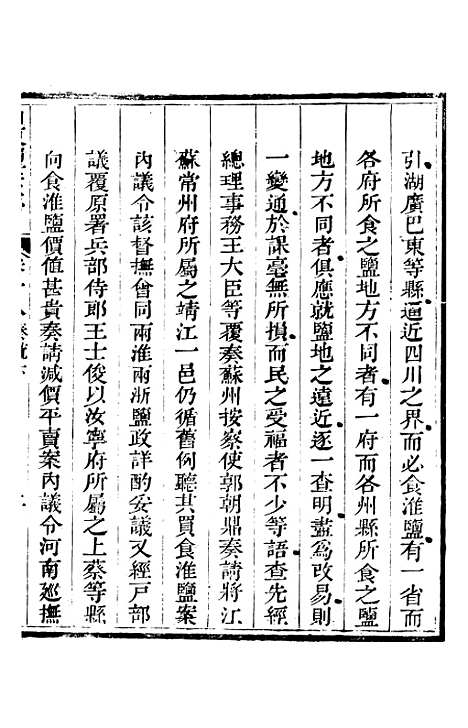 引湖廣巴東等縣逼近四川之界而必食淮鹽有一省而
各府所食之鹽地方不同者有一府而各州縣所食之鹽
地方不同者俱應就鹽地之遠近逐一查明盡爲改易則
一變通於課毫無所損而民之受福者不少等語查先經
總理事務王大臣等覆奏蘇州按察使郭朝鼎奏請將江
蘇常州府所屬之靖江一邑仍循舊例聽其買食淮鹽案
內議令該督撫會同兩淮兩浙鹽政詳酌妥議又經戶部
議覆原署兵部侍郎王士俊以汝寧府所屬之上蔡等縣
向食淮鹽價值甚貴奏請減價平賣案內議令河南廵撫